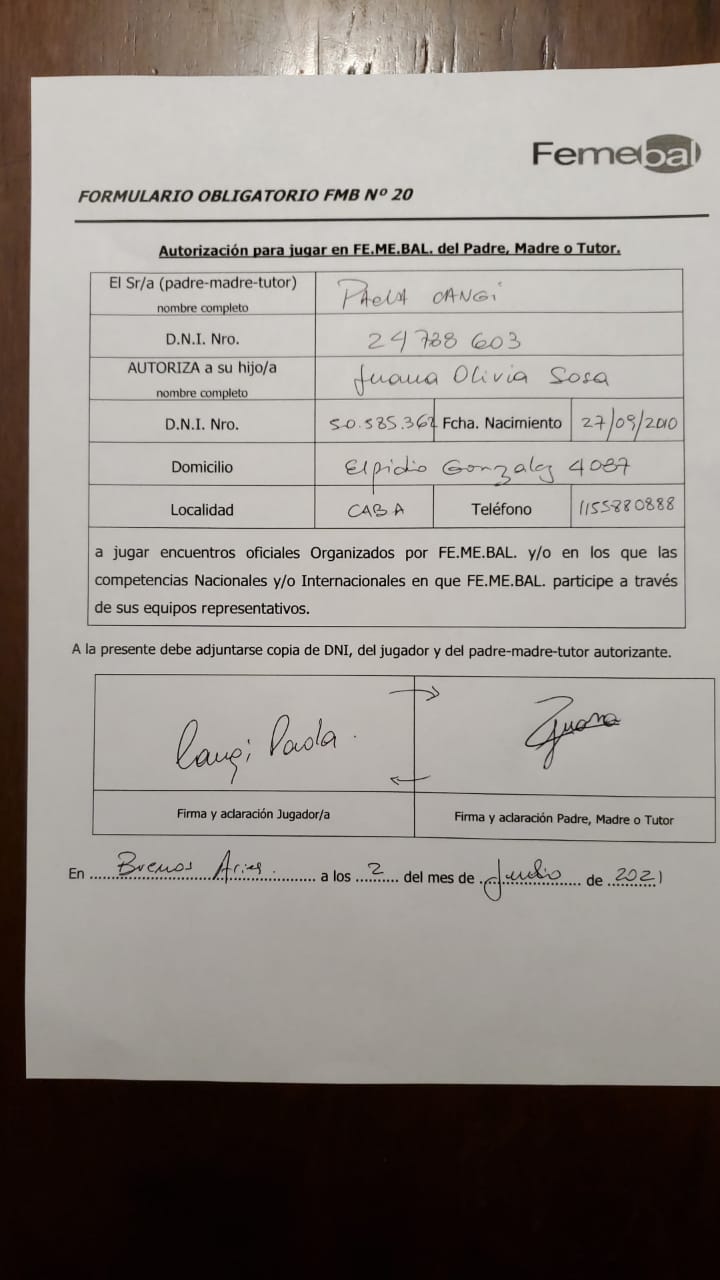 Femebal
FORMULARIO OBLIGATORIO FMB Nº 20
Autorización para jugar en FE.ME.BAL. del Padre, Madre o Tutor.
El Sr/a (padre-madre-tutor)
nombre completo
PAOLA CANGI
D.N.I. Nro.
24788603
AUTORIZA a su hijo/a
nombre completo
Juana Olivia Sosa
D.N.I. Nro. 50.585.367 Fcha. Nacimiento 27/09/2010
Domicilio Elpidio Gonzalez 4087
Localidad CABA Teléfono 1155880888
a jugar encuentros oficiales Organizados por FE.ME.BAL. y/o en los que las
competencias Nacionales y/o Internacionales en que FE.ME.BAL. participe a través
de sus equipos representativos.
A la presente debe adjuntarse copia de DNI, del jugador y del padre-madre-tutor autorizante.
Cangi Paola. Juana
Firma y aclaración Jugador/a Firma y aclaración Padre, Madre o Tutor
En Buenos Aires a los 2 del mes de Julio de 2021